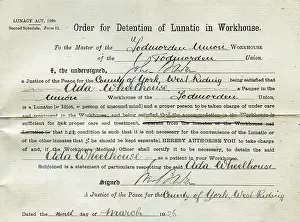 LUNACY ACT, 1890.
Second Schedule, Form 11.
Order for Detention of Lunatic in Workhouse.
To the Master of the Todmorden Union WORKHOUSE
of Todmorden Union.
I, the undersigned,
a Justice of the Peace for County of York, West Riding being satisfied that
Ada Wheelhouse a Pauper in the
Union Workhouse of the Todmorden Union,
is a Lunatic (or Idiot, or person of unsound mind) and a proper person to be taken charge of under care
and treatment in the workhouse, and being satisfied that the accommodation in the Workhouse is
sufficient for her proper care and treatment, separate from the inmates of the Workhouse not
Lunatics or that her condition is such that it is not necessary for the convenience of the Lunatic
or of the other inmates that she should be kept separate, HEREBY AUTHORISE YOU to take
charge of and, if the Workhouse Medical Officer shall certify it to be necessary, to detain the said
Ada Wheelhouse as a patient in your Workhouse.
Subjoined is a statement of particulars respecting the said Ada Wheelhouse
Signed
A Justice of the Peace for County of York, West Riding
Dated the day of March 1926